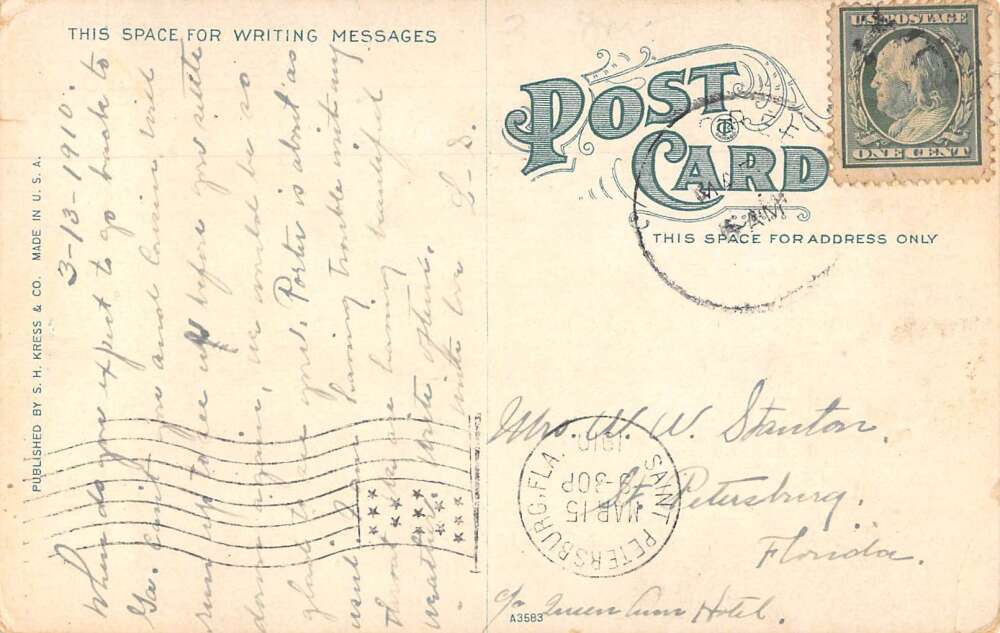 THIS SPACE FOR WRITING MESSAGES
POST CARD
THIS SPACE FOR ADDRESS ONLY
U.S. POSTAGE
ONE CENT
PUBLISHED BY S. H. KRESS & CO. MADE IN U. S. A.
3-13-1910.
When do you expect to go back to
Ga. can't you and Cousin Will
run up to see us before you settle
down again, we would be so
glad to see you. Porter is about as
usual. I am having trouble with my
throat. We are having beautiful
weather. Write often.
With love
MAR
AM
SAINT PETERSBURG, FLA.
MAR 15
3-30P
1910
Mrs. W. W. Stanton.
St. Petersburg.
Florida.
c/o Queen Ann Hotel.
A3583